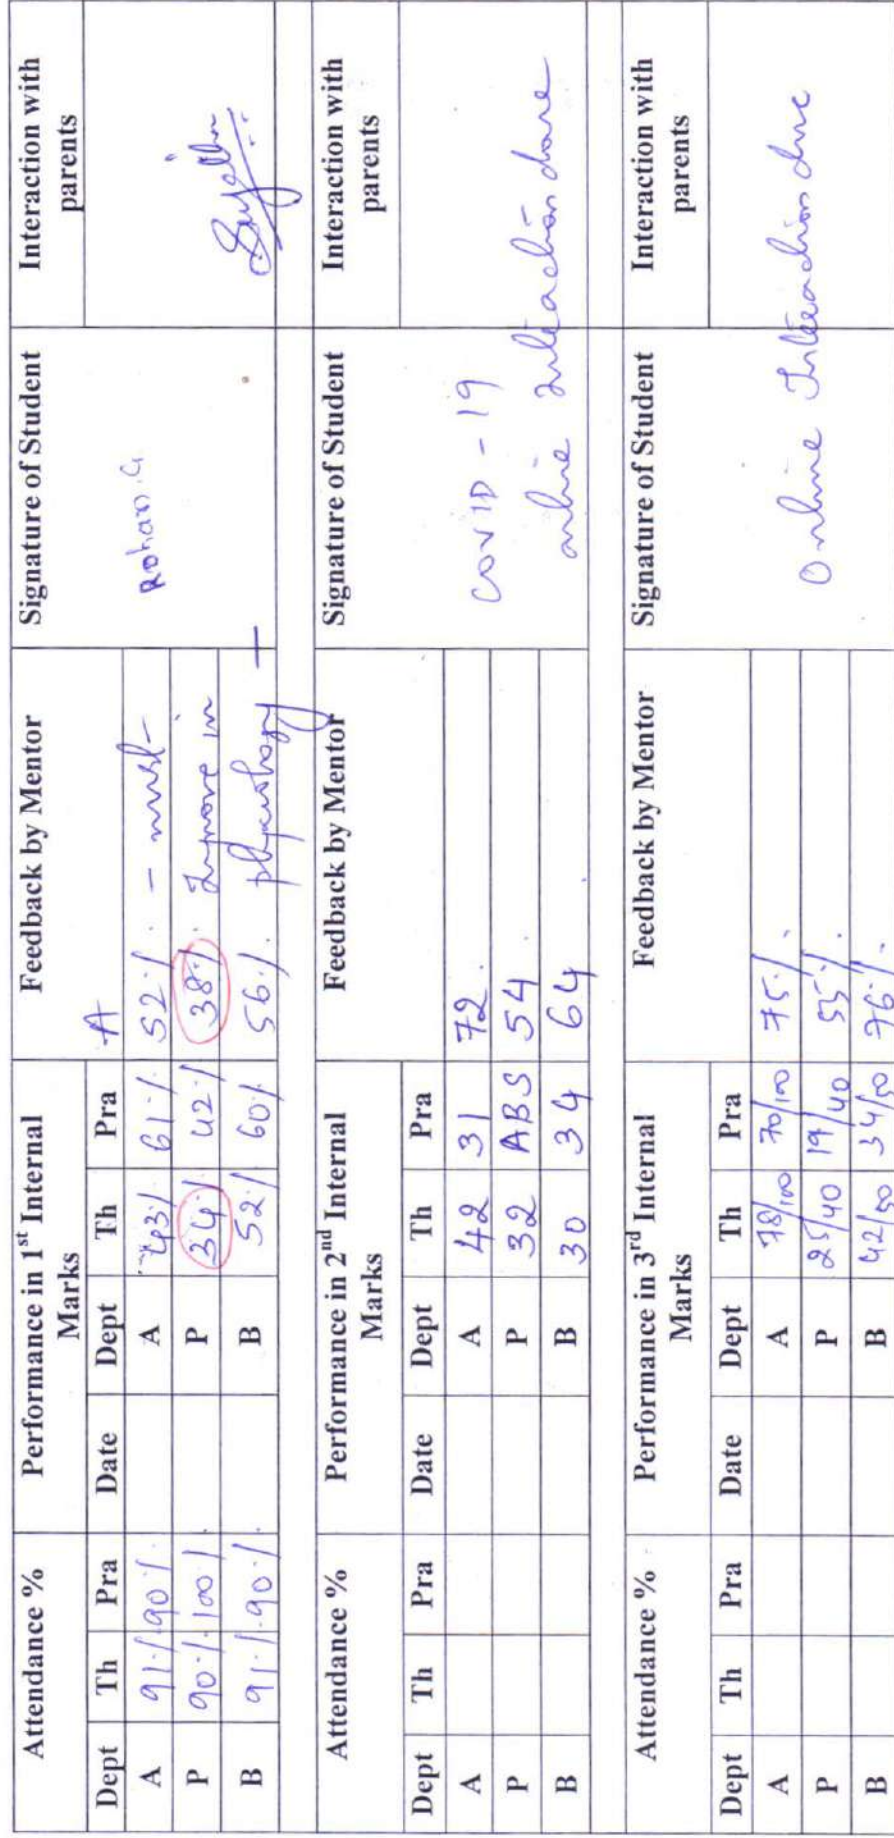 Attendance % Performance in 1st Internal Marks Feedback by Mentor Signature of Student Interaction with parents
Dept Th Pra Date Dept Th Pra A
A 91% 90% A 43% 61% 52% - must Rohan.G
P 90% 100% P 34% 42% 38% Improve in
B 91% 90% B 52% 60% 56% physiology
Attendance % Performance in 2nd Internal Marks Feedback by Mentor Signature of Student Interaction with parents
Dept Th Pra Date Dept Th Pra
A A 42 31 72. COVID-19
P P 32 ABS 54 online interaction done
B B 30 34 64
Attendance % Performance in 3rd Internal Marks Feedback by Mentor Signature of Student Interaction with parents
Dept Th Pra Date Dept Th Pra
A A 78/100 70/100 75%. Online Interaction done
P P 25/40 19/40 55%.
B B 42/50 34/50 76%.